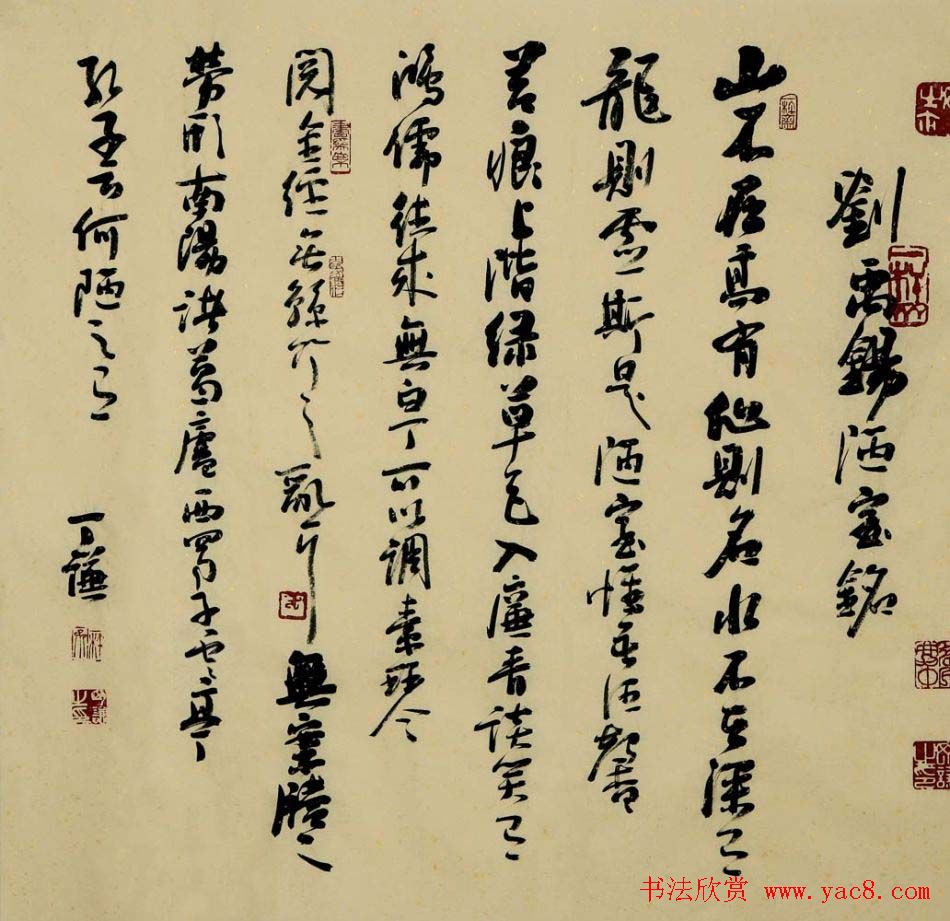 劉禹錫陋室銘
山不在高有仙則名水不在深有
龍則靈斯是陋室惟吾德馨
苔痕上階綠草色入簾青談笑有
鴻儒往來無白丁可以調素琴
閱金經無絲竹之亂耳無案牘之
勞形南陽諸葛廬西蜀子雲亭
孔子云何陋之有
丁謙
书法欣赏 www.yac8.com